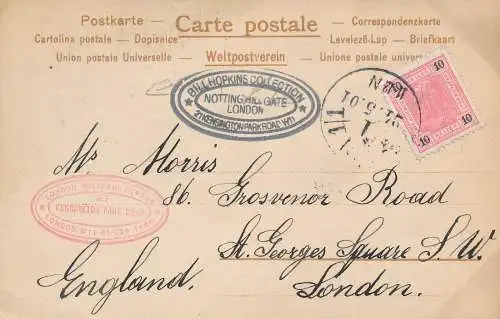 Postkarte — Carte postale — Correspondenzkarte
Cartolina postale — Dopisnice — Levelező-Lap — Briefkaart
Union postale Universelle — Weltpostverein — Unione postale univers
BILL HOPKINS COLLECTION
NOTTING HILL GATE
LONDON
KENSINGTON PARK ROAD W11
WIEN
1
5.01
10 10
10 10
Ms Morris
86. Grosvenor Road
St. Georges Square S. W.
England. London.
KENSINGTON PARK ROAD
LONDON W11